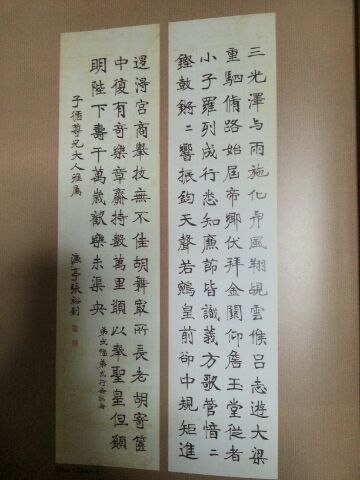 三光澤与雨施化與風翔覘雲候呂志遊大梁
重駟脩路始屆帝鄉伏拜金闕仰瞻玉堂從者
小子羅列成行悉知廉節皆識義方歌管愔〻
鏗鼓鏘〻響振鈞天聲若鵷皇前卻中規矩進
退得宮商舉技無不佳胡舞最所長老胡寄篋
中復有奇樂章齎持數萬里願以奉聖皇但願
明陛下壽千萬歲歡樂未渠央
弟弍幅弟弍行
子循尊兄大人雅屬
濂亭張裕釗